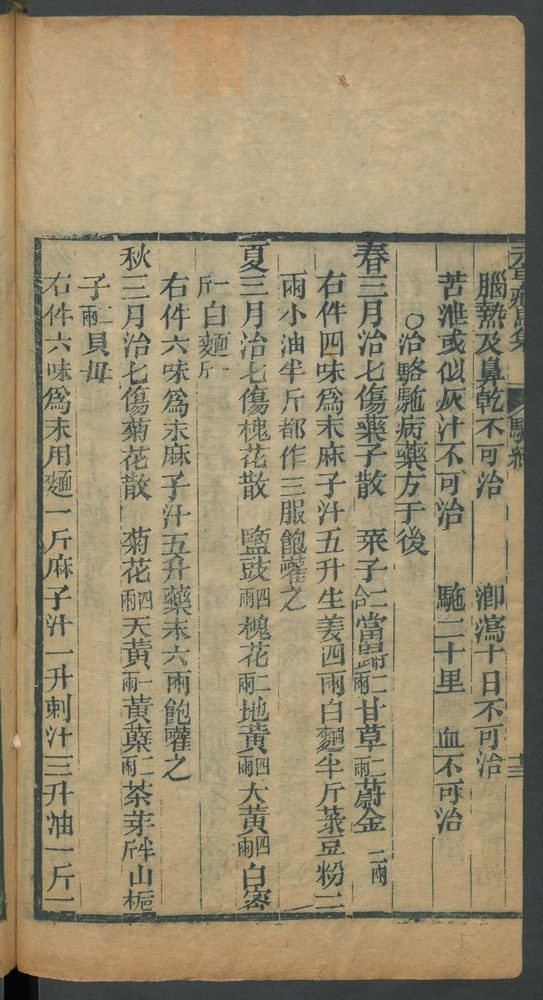 腦熱及鼻乾不可治　　㵼十日不可治
苦泄或似灰汁不可治　　駞二十里　血不可治
○治駱駞病藥方于後
春三月治七傷藥子散　菜子二合當歸二兩甘草二兩蔚金二兩
右件四味爲末麻子汁五升生姜四兩白麵半斤菉豆粉二
兩小油半斤都作三服飽嚾之
夏三月治七傷槐花散　鹽豉四兩槐花二兩地黄四兩大黄四兩白蜜
一斤白麵一斤
右件六味爲末麻子汁五升藥末六兩飽嚾之
秋三月治七傷菊花散　菊花四兩天黄一兩黄藥二兩茶芽半斤山梔
子二兩貝母
右件六味爲末用麵一斤麻子汁一升刺汁三升油一斤二